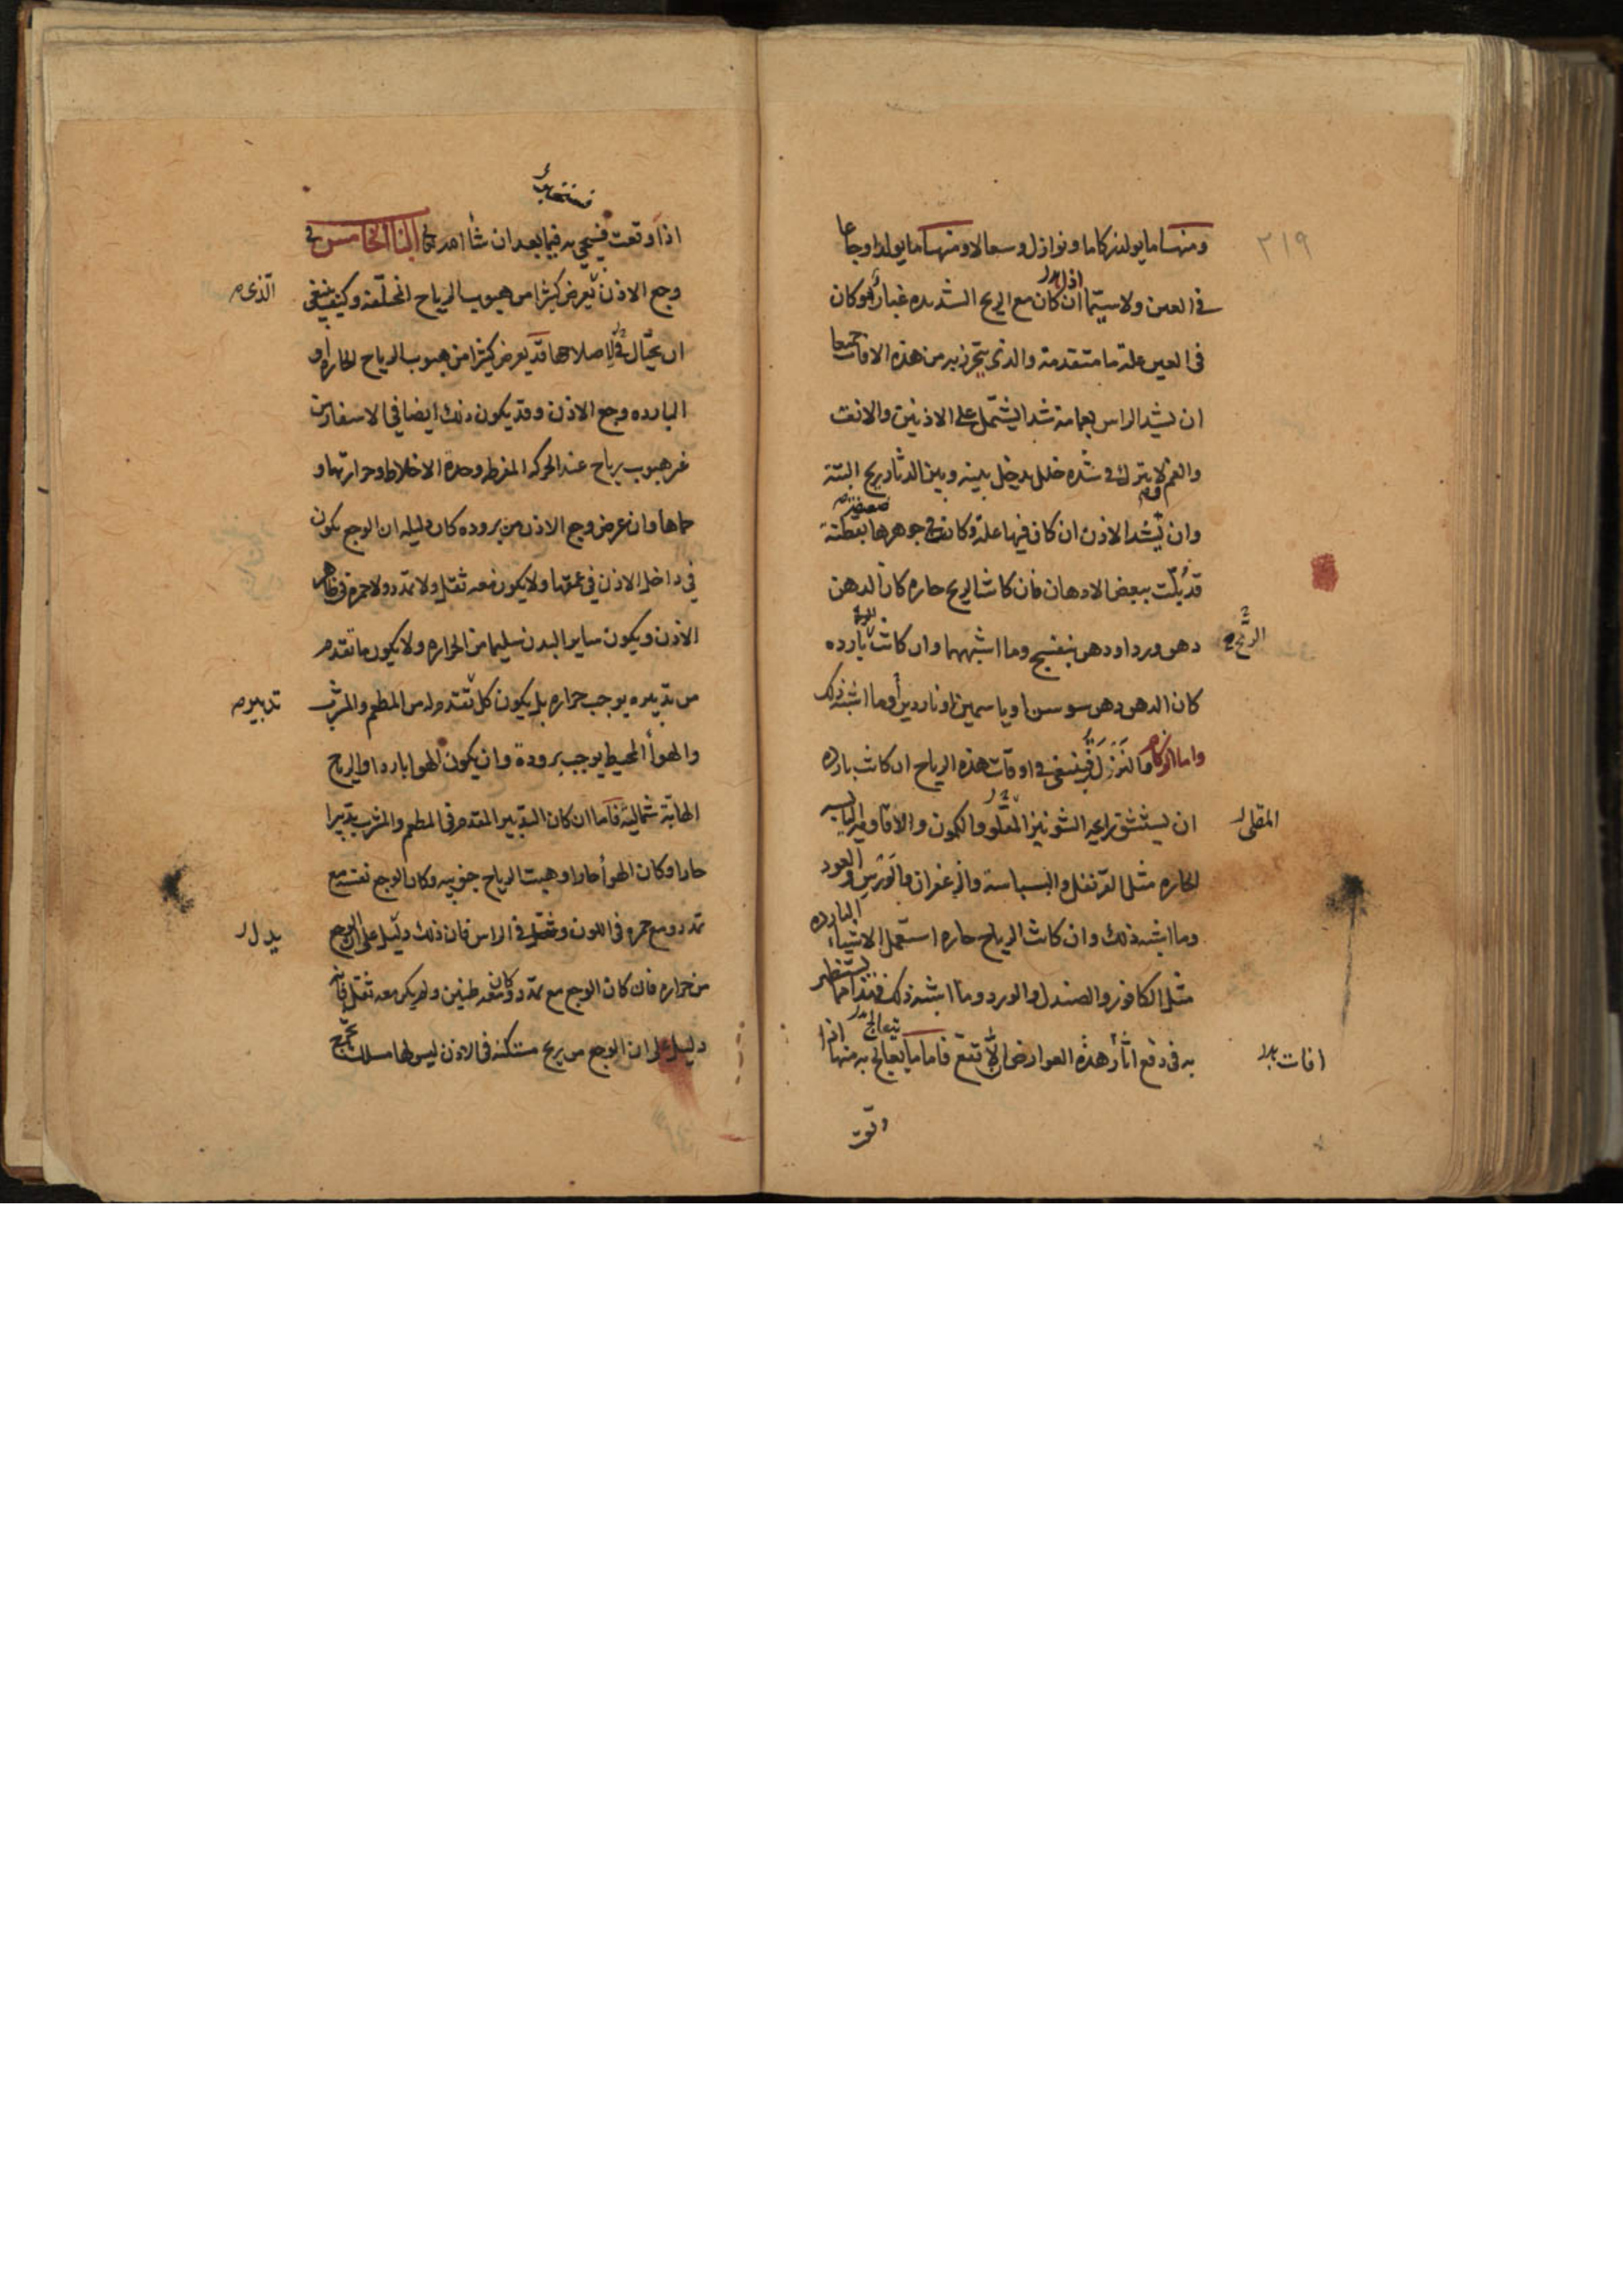 ٢١٩
ومنها ما يولد زكاما ونوازل وسعالا ومنها ما يولد اوجاعا
في العين ولا سيما ان كان مع الريح الشديده غبار او كان
في العين علة ما متقدمة والذي يتحرز به من هذه الافات جميعا
ان يشد الراس بعمامة شدا يشتمل على الاذنين والانف
والفم لا يترك في شده خلل يدخل بينه وبين الدثار ريح البتة
وان يشد الاذن ان كان فيها علة وكان في جوهرها بقطنة
قد بلت ببعض الادهان فان كانت الريح حاره كان الدهن
دهن ورد او دهن بنفسج وما اشبههما وان كانت بارده
الريح
كان الدهن دهن سوسن او ياسمين او ناردين او ما اشبه ذلك
واما الزكام والنزل فينبغي في اوقات هذه الرياح ان كانت بارده
ان يستنشق رايحه الشونيز المقلو والكمون والافاويه اليابسه
المقلي
الحاره مثل القرنفل والبسباسة والزعفران والورس والعود
وما اشبه ذلك وان كانت الرياح حاره استعمل الاشياء البارده
مثل الكافور والصندل والورد وما اشبه ذلك فهذا ما يستظهر
به في دفع اثار هذه العوارض الا تقع فاما ما يعالج به منها اذا
يتعالج
افات
وقعت
اذا وقعت فيجي به فيما بعد ان شا الله تعالى الباب الخامس في
وجع الاذن يعرض كثيرا من هبوب الرياح المختلفة وكيف ينبغي
الذي
ان يحتال في اصلاحها قد يعرض كثيرا من هبوب الرياح الحاره او
البارده وجع الاذن وقد يكون ذلك ايضا في الاسفار من
غير هبوب رياح عند الحركه المفرطه وحدة الاخلاط وحرارتها و
حماها وان عرض وجع الاذن من بروده كان دليله ان الوجع يكون
في داخل الاذن في عمقها ولا يكون معه ثقل ولا تمدد ولا حمرة في ظاهر
الاذن ويكون ساير البدن سليما من الحراره ولا يكون ما تقدم
من تدبيره يوجب حراره بل يكون كل تقدم له من المطعم والمشرب
تدبيره
والهوا المحيط يوجب برودة وان يكون الهوا باردا والريح
الهابة شمالية فاما ان كان التدبير المتقدم في المطعم والمشرب تدبيرا
حارا وكان الهوا حارا وهبت الرياح جنوبيه وكان الوجع نفسه مع
تمدد ومع حمره في اللون وثقل في الراس فان ذلك دليل على ان الوجع
يدل
من حراره فان كان الوجع مع تمدد وكان معه طنين ولم يكن معه ثقل فانه
دليل على ان الوجع من ريح مستكنه في الاذن ليس لها مسلك تخرج